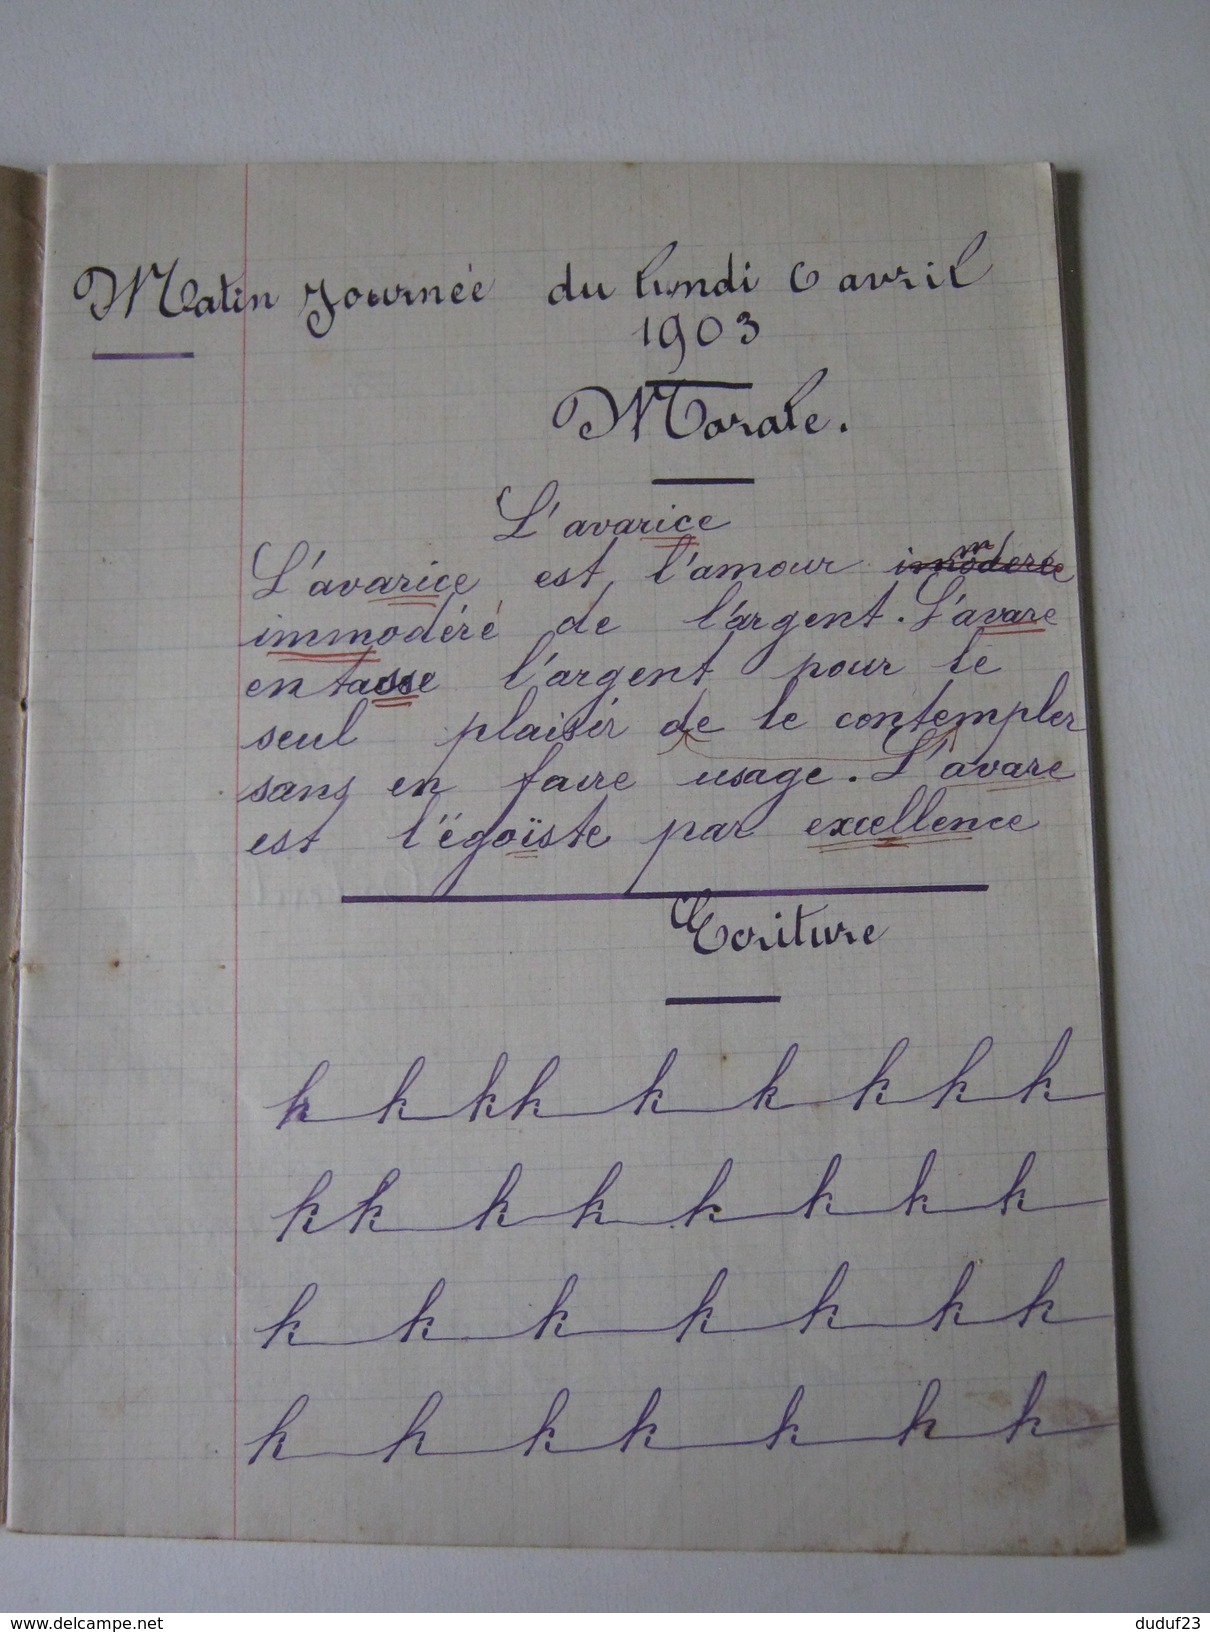 Matin Journée du lundi 6 avril
1903
Morale.
L'avarice
L'avarice est l'amour immodéré
immodéré de l'argent. L'avare
entasse l'argent pour le
seul plaisir de le contempler
sans en faire usage. L'avare
est l'égoïste par excellence
Ecriture
k k k k k k k k k
k k k k k k k k
k k k k k k k
k k k k k k k
delcampe.net
duduf23